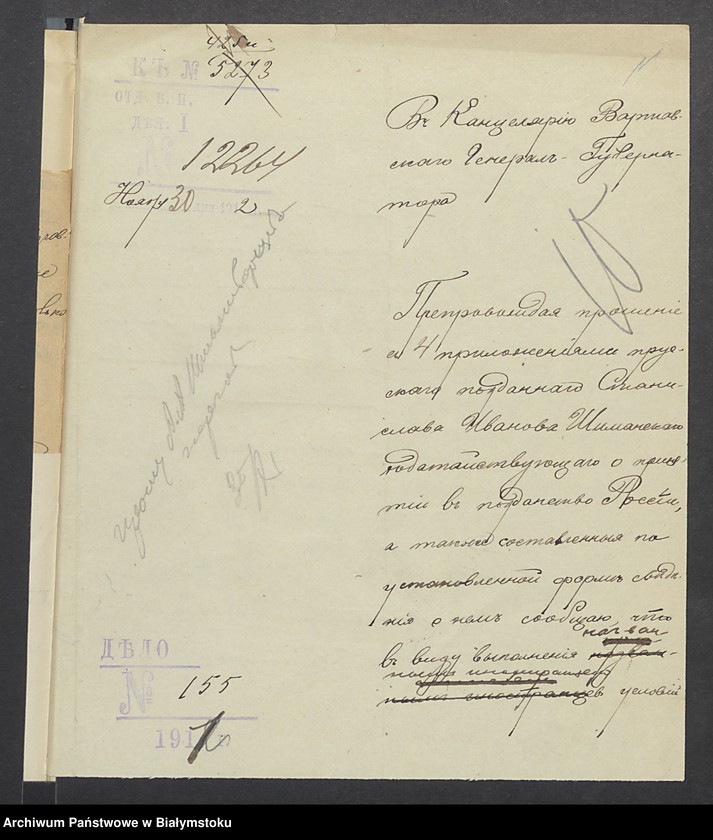 425 и
К Б № 5273
ОТД. В. П.
ДѢЛ. I
№ 12264
Ноябр 30 2
Въ Канцелярію Варшав-
скаго Генералъ-Губерна-
тора
Препровождая прошеніе
съ 4 приложеніями прус-
скаго подданнаго Стани-
слава Иванова Шиманскаго
ходатайствующаго о приня-
тіи въ подданство Россіи,
а также составленныя по
установленной формѣ свѣдѣ-
нія о немъ сообщаю, что
въ виду выполненія назван-
нымъ иностранцемъ условій
ДѢЛО
№ 155
191 г.
Archiwum Państwowe w Białymstoku